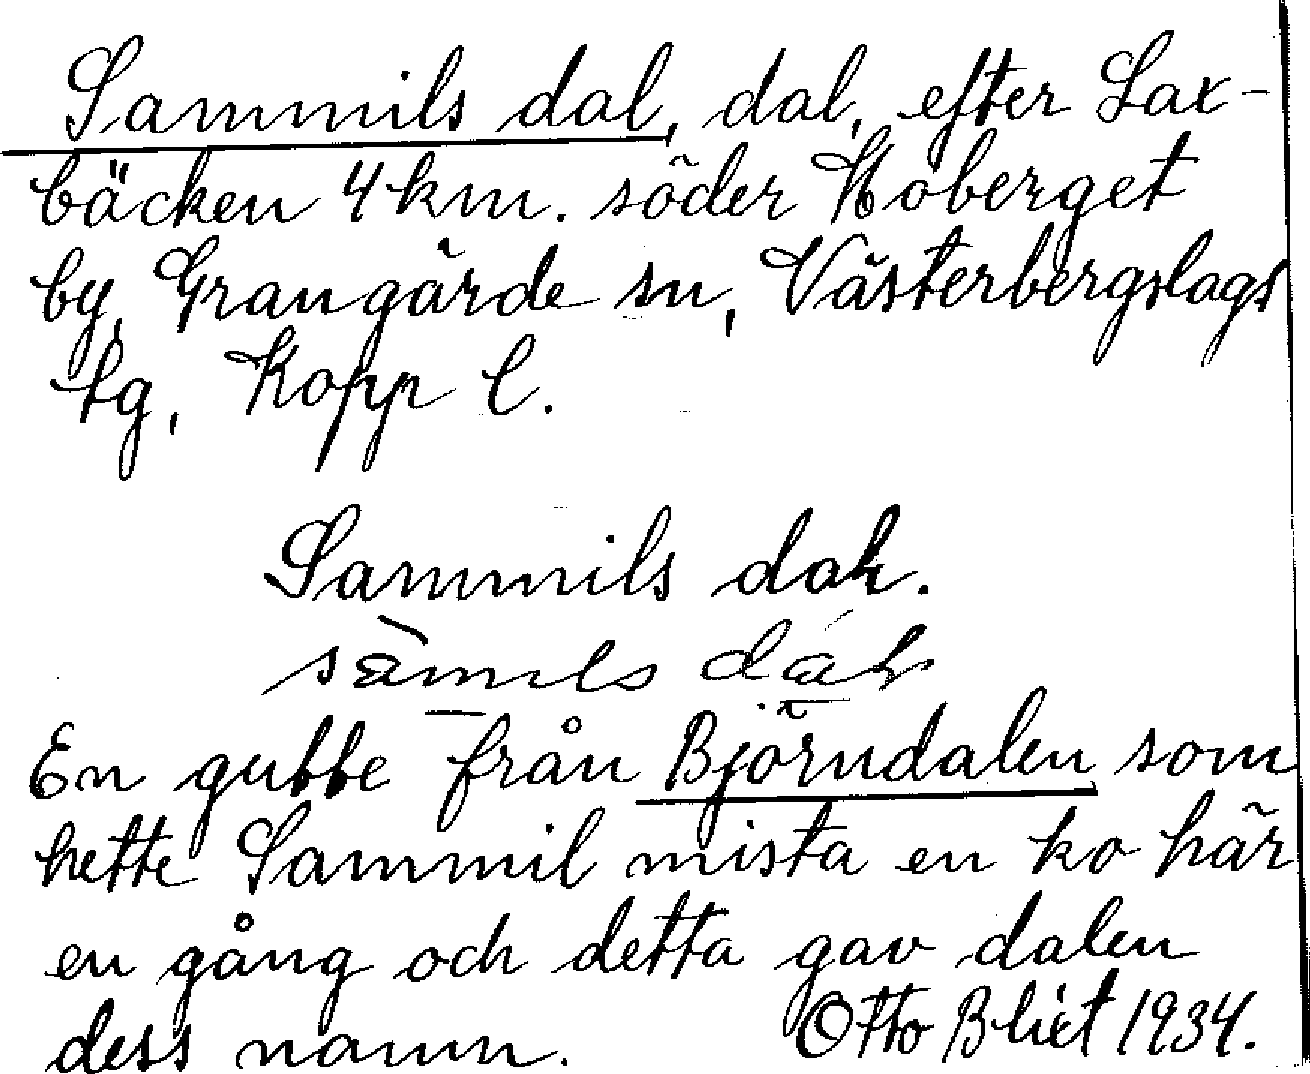 Sammils dal, dal, efter Lax-
bäcken 4 km. söder Höberget
by, Grangärde sn, Västerbergslags
tg, Kopp l.
Sammils dal.
En gubbe från Björndalen som
hette Sammil mista en ko här
en gång och detta gav dalen
dess namn. Otto Blixt 1934.